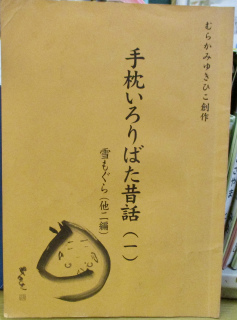 むらかみゆきひこ創作
手枕いろりばた昔話(一)
雪もぐら(他二編)